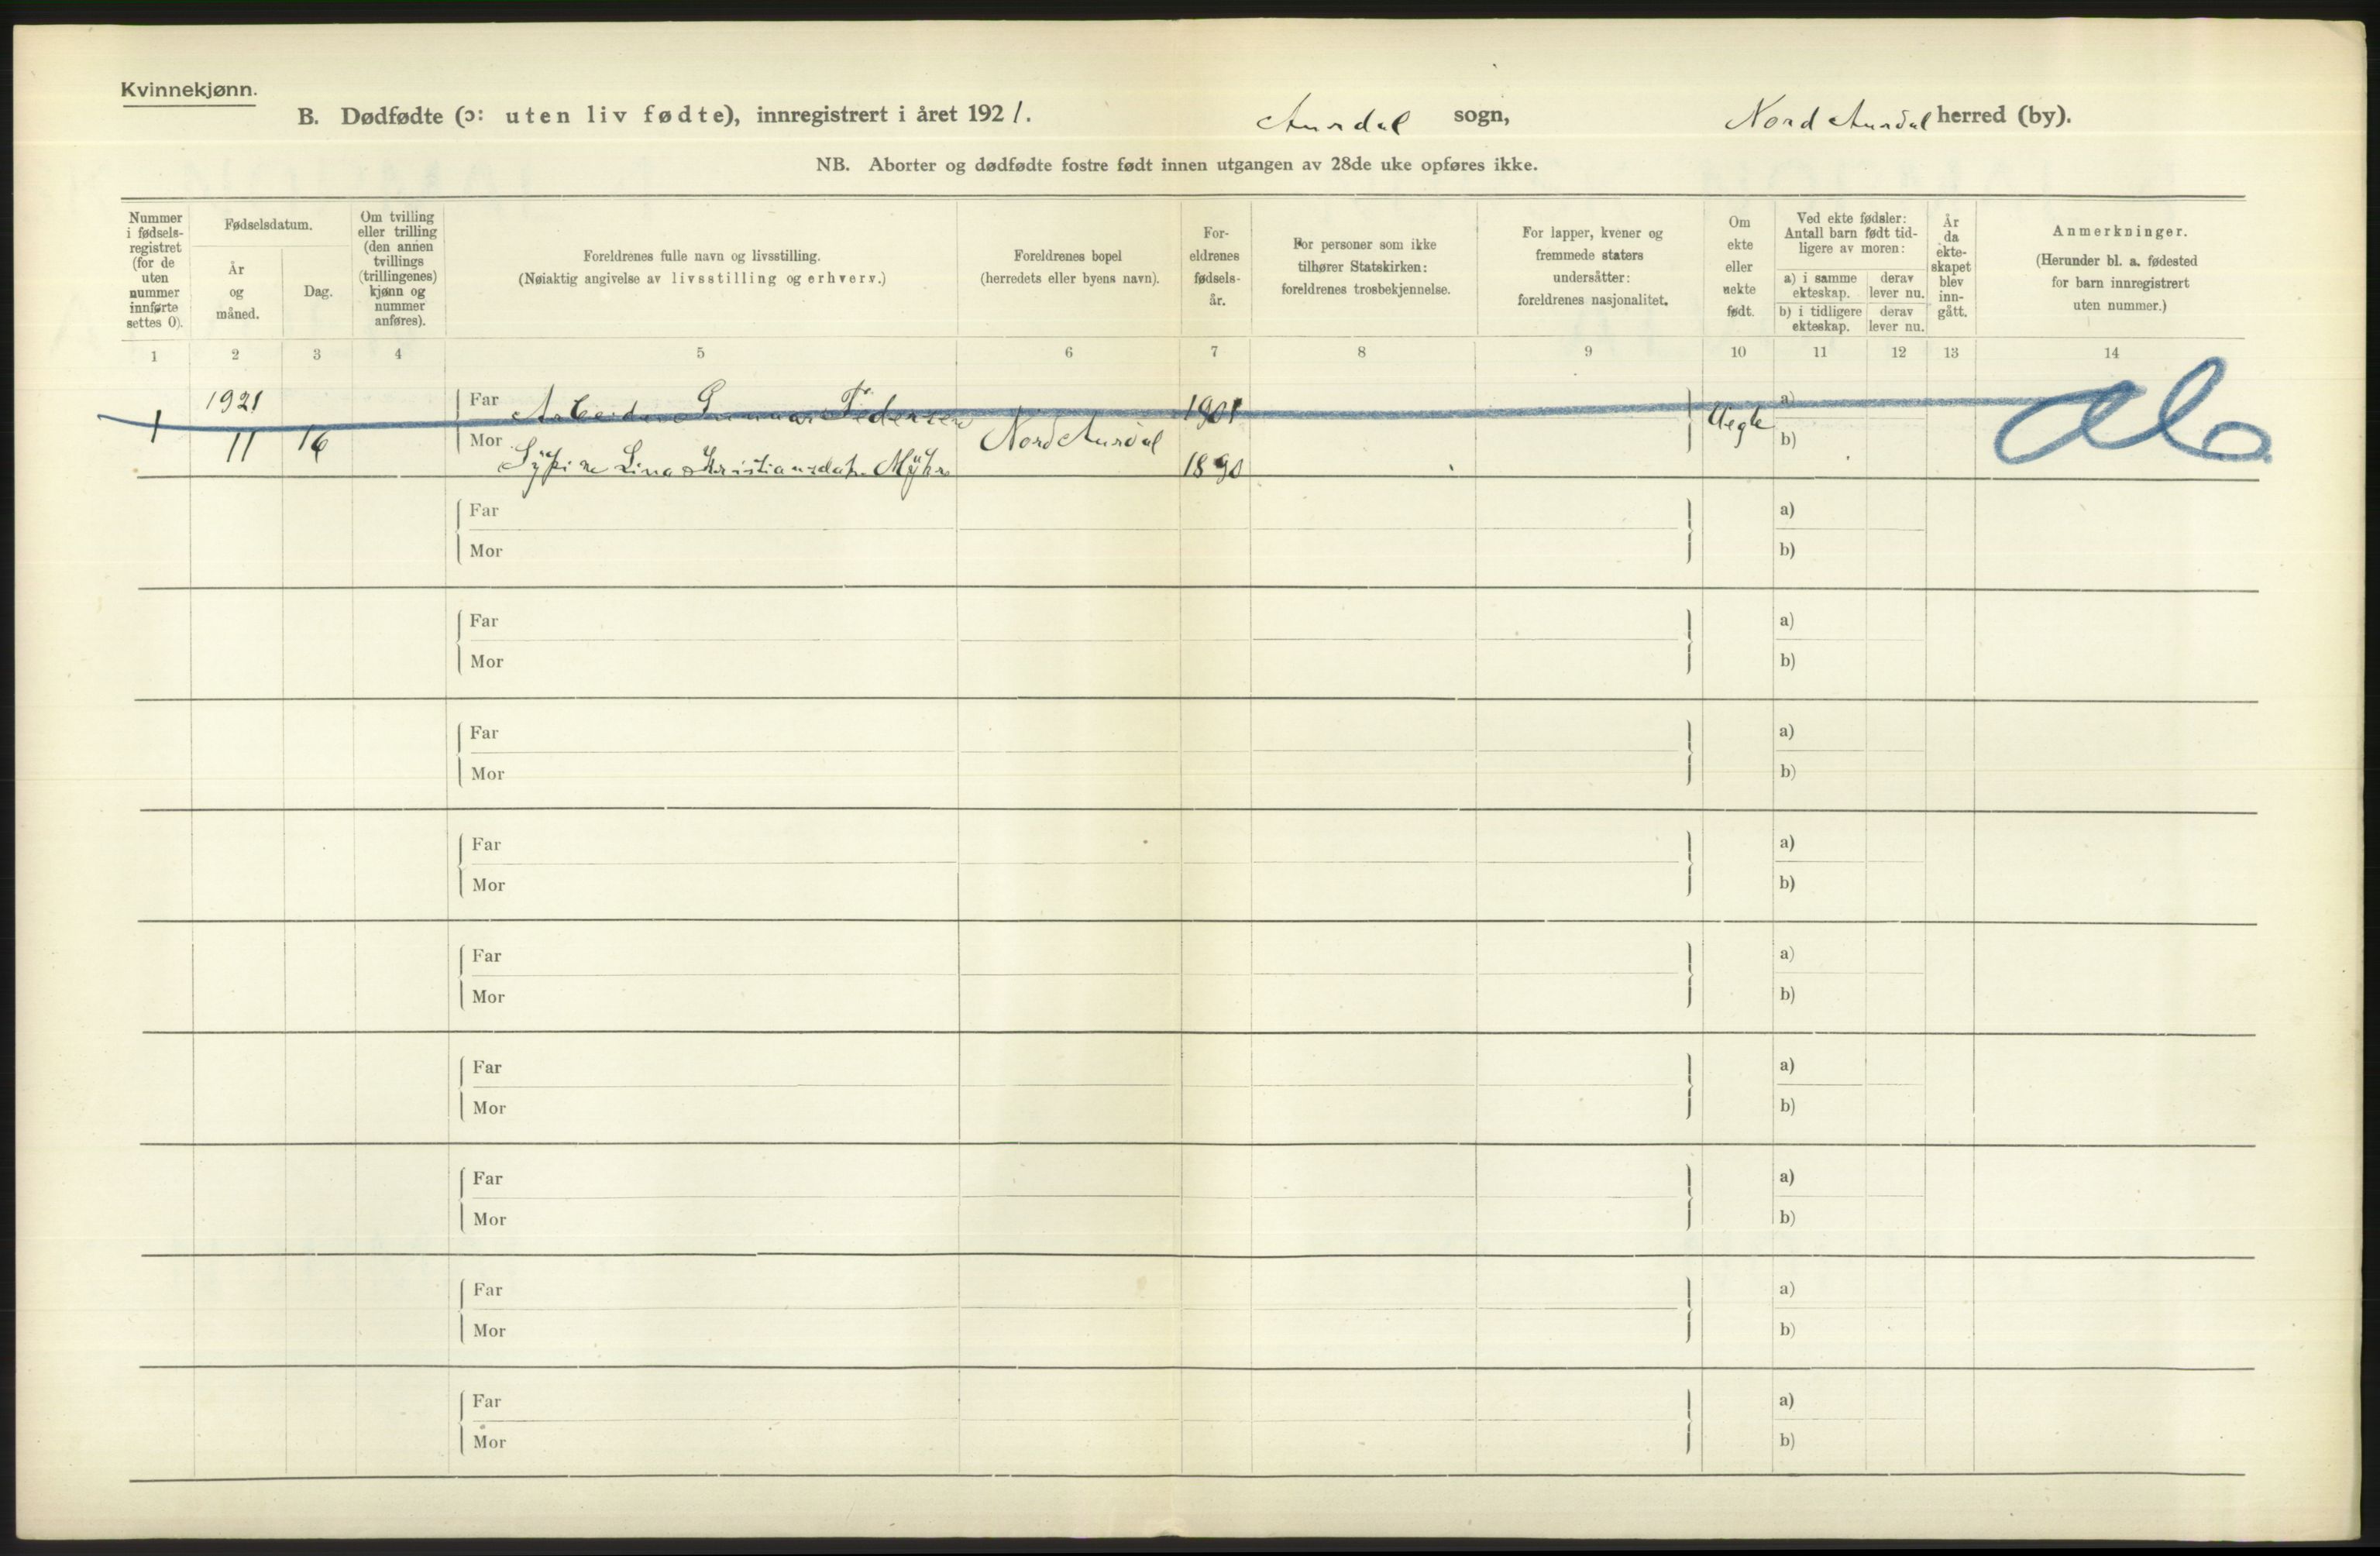 Kvinnekjønn.
B. Dødfødte (ɔ: uten liv fødte), innregistrert i året 1921. Aurdal sogn, Nord Aurdal herred (by).
NB. Aborter og dødfødte fostre født innen utgangen av 28de uke opføres ikke.
Nummer
i fødsels-
registret
(for de
uten
nummer
innførte
settes 0).
Fødselsdatum.
År
og
måned.
Dag.
Om tvilling
eller trilling
(den annen
tvillings
(trillingenes)
kjønn og
nummer
anføres).
Foreldrenes fulle navn og livsstilling.
(Nøiaktig angivelse av livsstilling og erhverv.)
Foreldrenes bopel
(herredets eller byens navn).
For-
eldrenes
fødsels-
år.
For personer som ikke
tilhører Statskirken:
foreldrenes trosbekjennelse.
For lapper, kvener og
fremmede staters
undersåtter:
foreldrenes nasjonalitet.
Om
ekte
eller
uekte
født.
Ved ekte fødsler:
Antall barn født tid-
ligere av moren:
a) i samme
ekteskap.
derav
lever nu.
b) i tidligere
ekteskap.
derav
lever nu.
År
da
ekte-
skapet
blev
inn-
gått.
Anmerkninger.
(Herunder bl. a. fødested
for barn innregistrert
uten nummer.)
1 2 3 4 5 6 7 8 9 10 11 12 13 14
1921 Far Arbeider Gunnar Pedersen 1901 a)
1 11 16 Mor Nord Aurdal Uegte b)
Lina Kristiansdatr. Myhre 1890
Far a)
Mor b)
Far a)
Mor b)
Far a)
Mor b)
Far a)
Mor b)
Far a)
Mor b)
Far a)
Mor b)
Far a)
Mor b)
Far a)
Mor b)
Far a)
Mor b)